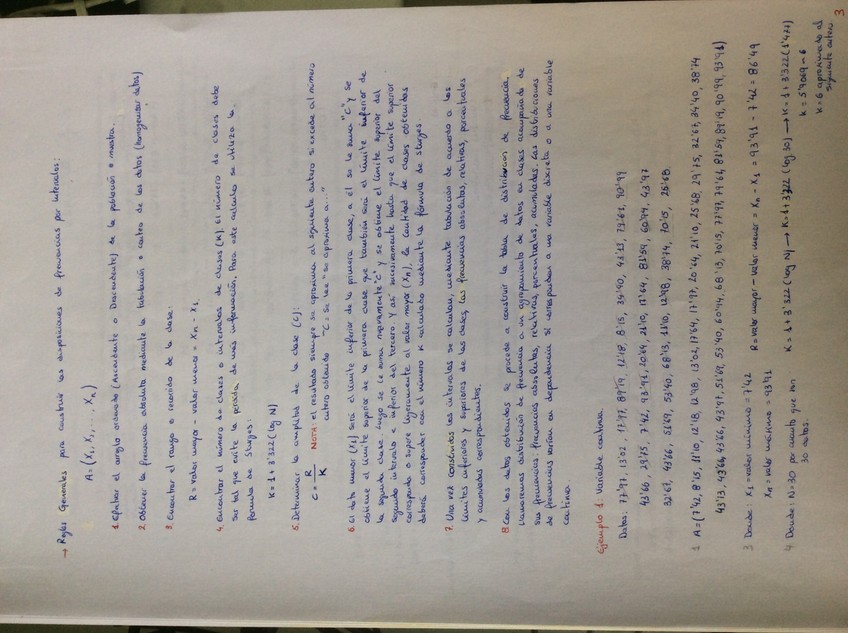 → Reglas Generales para construir las disposiciones de frecuencias por intervalos:
A = (X₁, X₁, ..., Xₙ)
1. Efectuar el arreglo ordenado (Ascendente o Descendente) de la población o muestra.
2. Obtener la frecuencia absoluta mediante la tabulación o conteo de los datos (homogenizar datos)
3. Encontrar el rango o recorrido de la clase:
R = valor mayor - valor menor = Xₙ - X₁
4. Encontrar el número de clases o intervalos de clases (K). El número de clases debe
ser tal que evite la perdida de más información. Para este calculo se utiliza la
fórmula de Sturges:
K = 1 + 3'322 (log N)
5. Determinar la amplitud de la clase (C):
C = R/K NOTA: el resultado siempre se aproxima al siguiente entero si excede al número
entero obtenido "C = se lee = se aproxima a..."
6. El dato menor (X₁) será el límite inferior de la primera clase, a él se le suma "C" y se
obtiene el límite superior de la primera clase que también será el límite inferior de
la segunda clase. Luego se le suma nuevamente "C" y se obtiene el límite superior del
segundo intervalo e inferior del tercero. Y así sucesivamente hasta que el límite superior
corresponda o supere ligeramente al valor mayor (Xₙ), la cantidad de clases obtenidas
deberá corresponder con el número K calculado mediante la fórmula de Sturges
7. Una vez construidos los intervalos se calculan, mediante tabulación de acuerdo a los
límites inferiores y superiores de las clases, las frecuencias absolutas, relativas, porcentuales
y acumuladas correspondientes.
8. Con los datos obtenidos se procede a construir la tabla de distribución de frecuencia.
Llamaremos distribución de frecuencia a un agrupamiento de datos en clases acompañado de
sus frecuencias: frecuencias absolutas, relativas, porcentuales, acumuladas. Las distribuciones
de frecuencias varían en dependencia si corresponden a una variable discreta o a una variable
continua.
Ejemplo 1: Variable continua.
Datos: 77'97, 13'02, 17'97, 89'19, 12'18, 8'15, 34'40, 43'13, 79'61, 90'99
43'66, 29'75, 7'42, 93'91, 20'64, 21'10, 17'64, 81'59, 60'94, 43'97
32'67, 43'66, 51'69, 53'40, 68'13, 11'10, 12'98, 38'74, 70'15, 25'68.
1 A = (7'42, 8'15, 11'10, 12'18, 12'98, 13'02, 17'64, 17'97, 20'64, 21'10, 25'68, 29'75, 32'67, 34'40, 38'74
43'13, 43'66, 43'66, 43'97, 51'69, 53'40, 60'94, 68'13, 70'15, 77'97, 79'61, 81'59, 89'19, 90'99, 93'91)
3 Donde: X₁ = valor mínimo = 7'42
Xₙ = valor máximo = 93'91
R = valor mayor - valor menor = Xₙ - X₁ = 93'91 - 7'42 = 86'49
4 Donde: N = 30 por cuanto que son
30 datos.
K = 1 + 3'322 (log N) → K = 1 + 3'322 (log 30) → K = 1 + 3'322 (1'477)
K = 5'9069 ≈ 6
K = 6 aproximado al
siguiente entero.
3